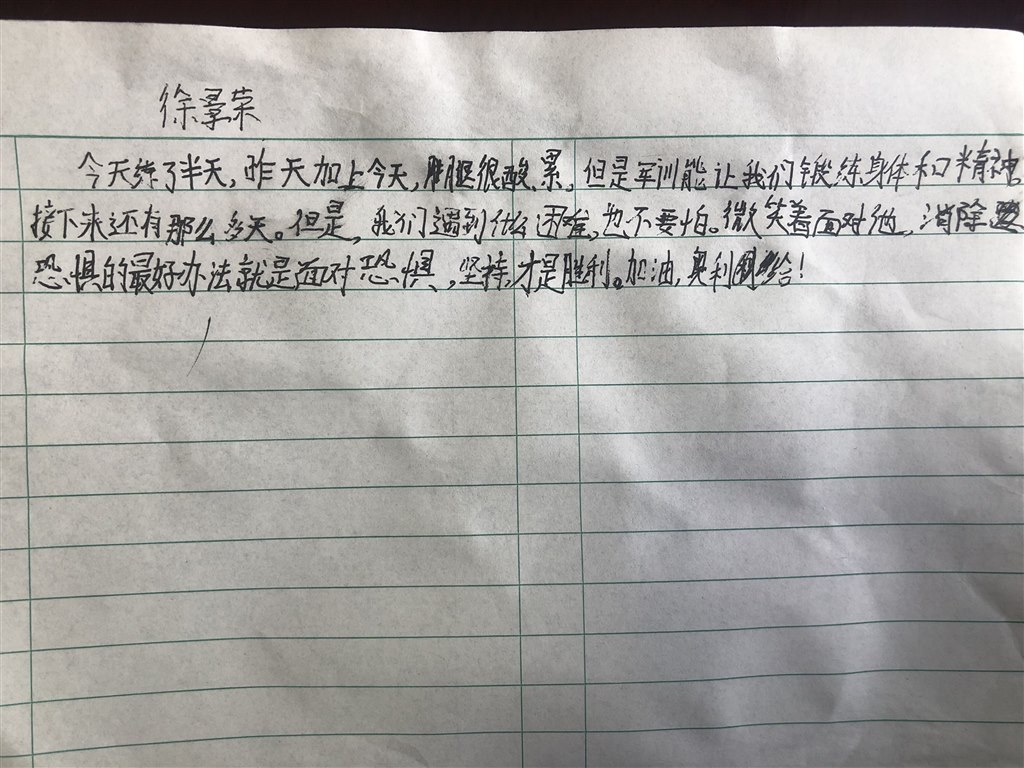 徐景荣
今天练了半天,昨天加上今天,腿很酸,累,但是军训能让我们锻练身体和精神,
接下来还有那么多天。但是,我们遇到什么困难,也不要怕。微笑着面对他,消除
恐惧的最好办法就是面对恐惧,坚持,才是胜利。加油,奥利给!